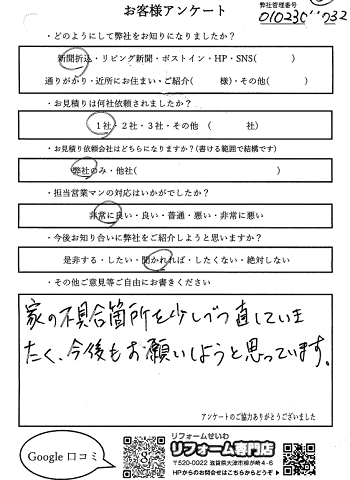 お客様アンケート
弊社管理番号
・どのようにして弊社をお知りになりましたか？
新聞折込・リビング新聞・ポストイン・HP・SNS( )
通りがかり・近所にお住まい・ご紹介( 様)・その他( )
・お見積りは何社依頼されましたか？
１社・２社・３社・その他 ( 社)
・お見積り依頼会社はどちらになりますか？(書ける範囲で結構です)
弊社のみ・他社( )
・担当営業マンの対応はいかがでしたか？
非常に良い・良い・普通・悪い・非常に悪い
・今後お知り合いに弊社をご紹介しようと思いますか？
是非する・したい・聞かれれば・したくない・絶対しない
・その他ご意見等ご自由にお書きください
家の不具合箇所を少しづつ直していき
たく、今後もお願いしようと思っています。
アンケートのご協力ありがとうございました
Google 口コミ
リフォームせいわ
リフォーム専門店
〒520-0022 滋賀県大津市柳が崎4-6
HPからのお問合せはこちらからどうぞ